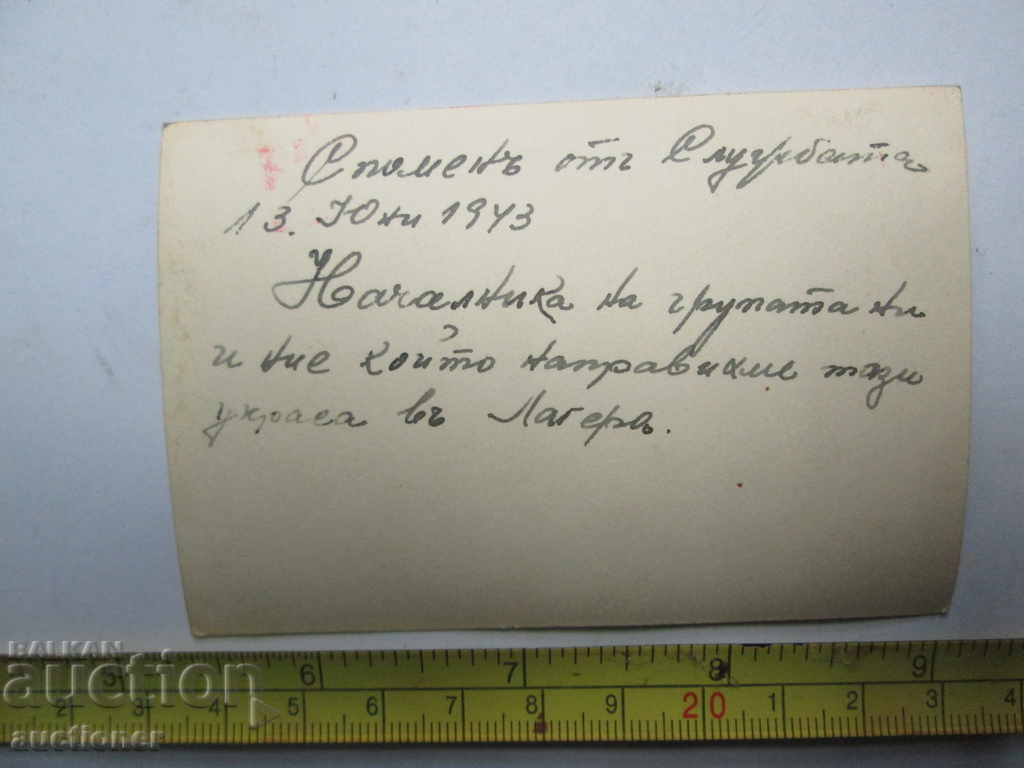 Споменъ отъ Службата
13. Юни 1943
Началника на групата ни
и ние който направихме тази
украса въ Лагера.
BALKAN
auction
auctioner
5 6 7 8 9
2 3 4 5 6 7 8 9 20 1 2 3 4